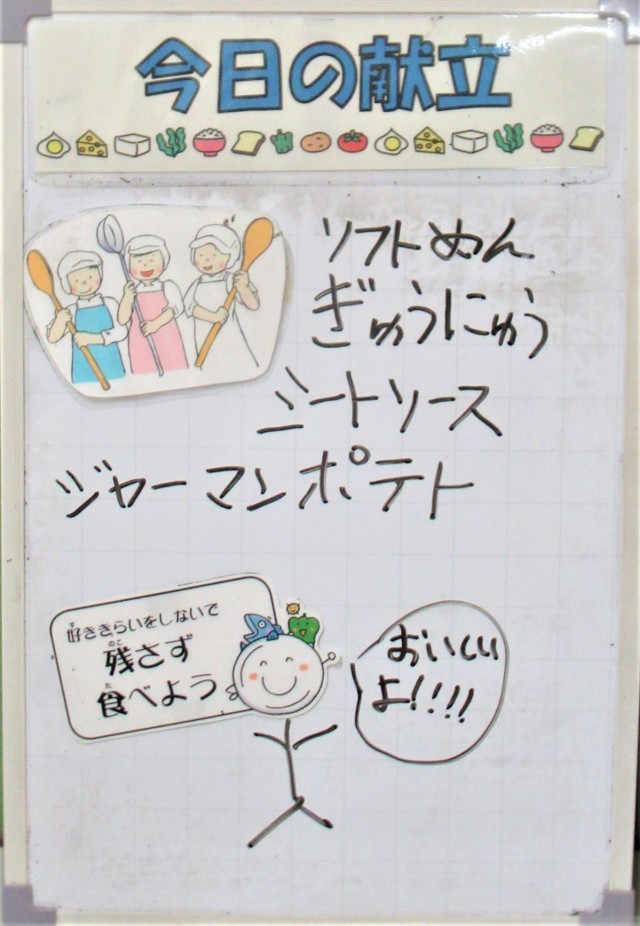 今日の献立
ソフトめん
ぎゅうにゅう
ミートソース
ジャーマンポテト
好ききらいをしないで
残さず
食べよう
おいしい
よ!!!!